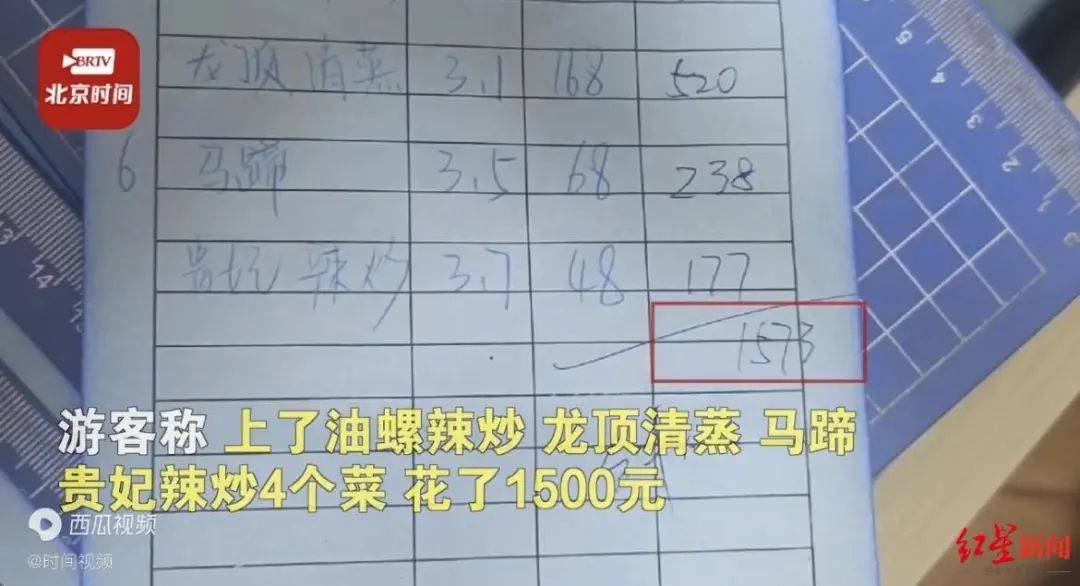 BRTV
北京时间
龙顶清蒸 3.1 168 520
6 马蹄 3.5 68 238
贵妃 辣炒 3.7 48 177
1573
游客称 上了油螺辣炒 龙顶清蒸 马蹄
贵妃辣炒4个菜 花了1500元
西瓜视频
@时间视频
红星新闻